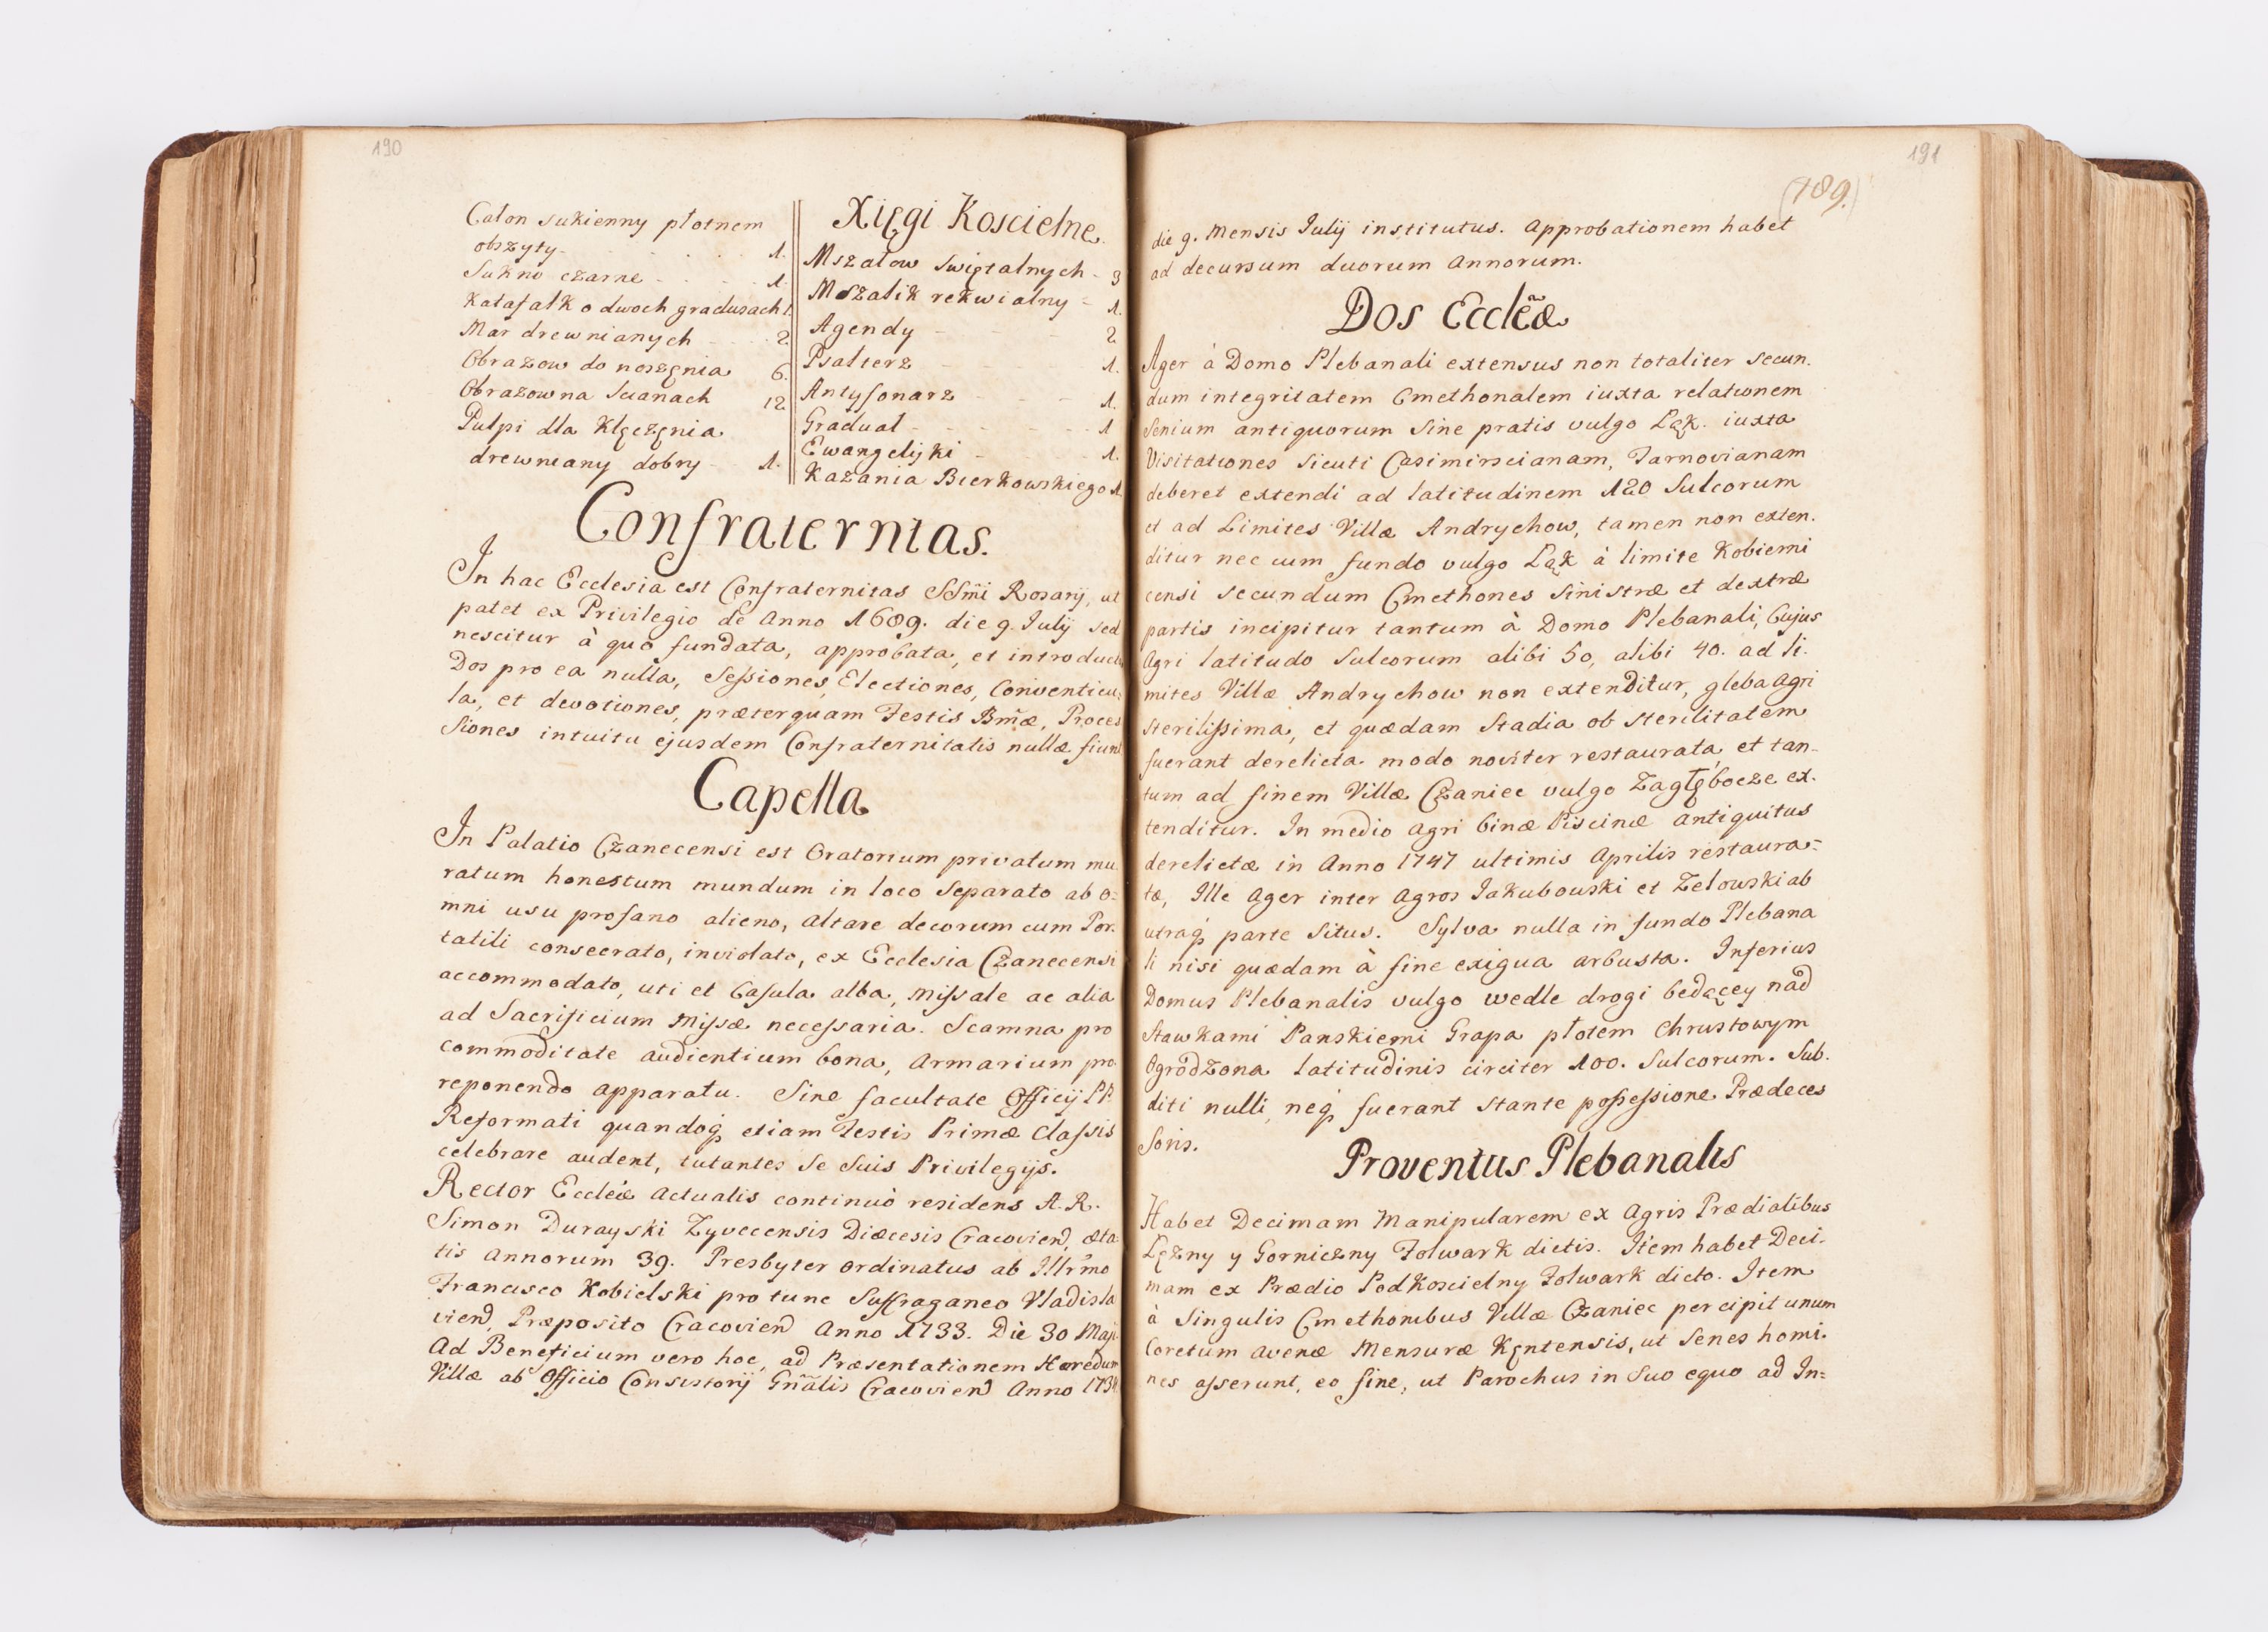 190
Całon sukienny płotnem
obszyty - 1.
Sukno czarne - 1.
Katafalk o dwoch gradusach 1.
Mar drewnianych - 2
Obrazow do noszęnia 6.
Obrazow na Scianach 12
Pulpi dla Klęczęnia
drewniany dobry - 1.
Xięgi Koscielne.
Mszałow swiętalnych - 3
Mszalik rekwialny - 1.
Agendy - 2
Psałterz 1.
Antyfonarz - 1.
Graduał - 1
Ewangelijki - 1.
Kazania Bierkowskiego 1.
Confraternitas.
In hac Ecclesia est Confraternitas SSm̃i Rosarij, ut
patet ex Privilegio de Anno 1689. die 9. Julij sed
nescitur à quo fundata, approbata, et introducta
Dos pro ea nulla, Sessiones, Electiones, Conventicu:
la, et devotiones, præterquam Festis Bm̃æ, Proces
siones intuitu ejusdem Confraternitatis nullæ fiunt
Capella
In Palatio Czanecensi est Oratorium privatum mu
ratum honestum mundum in loco separato ab o:
mni usu profano alieno, altare decorum cum Por.
tatili consecrato, inviolato, ex Ecclesia Czanecensi
accommodato, uti et Casula alba, Missale ac alia
ad Sacrificium Missæ necessaria. Scamna pro
commoditate audientium bona, armarium pro
reponendo apparatu. Sine facultate Officij PP.
Reformati quandoq́ etiam Festis Primæ Classis
celebrare audent, tutantes se suis Privilegijs.
Rector Eccleiæ actualis continuò residens A. R.
Simon Durayski Zyvecensis Diæcesis Cracovien̄, æta
tis annorum 39. Presbyter ordinatus ab Illr̃mo
Francisco Kobielski pro tunc Suffraganeo Vladisla
vien̄, Præposito Cracovien̄ Anno 1733. Die 30 Maji
Ad Beneficium vero hoc, ad Præsentationem Hæredum
Villæ ab Officio Consistorij Gñalis Cracovien̄ Anno 1734
191
(189.)
die 9. Mensis Julij institutus. Approbationem habet
ad decursum duorum Annorum.
Dos Eccleæ̃
Ager à Domo Plebanali extensus non totaliter secun.
dum integritatem Cmethonalem iuxta relationem
Senium antiquorum sine pratis vulgo Ląk. iuxta
Visitationes sicuti Casimirscianam, Tarnovianam
deberet extendi ad latitudinem 120 Sulcorum
et ad Limites Villæ Andrychow, tamen non exten.
ditur nec cum fundo vulgo Ląk à limite Kobierni
censi secundum Cmethones sinistræ et dextræ
partis incipitur tantum à Domo Plebanali, Cujus
Agri latitudo Sulcorum alibi 50, alibi 40. ad li.
mites Villæ Andrychow non extenditur, gleba agri
sterilissima, et quædam Stadia ob sterilitatem
fuerant derelicta modo noviter restaurata, et tan-
tum ad finem Villæ Czaniec vulgo Zagłębocze ex.
tenditur. In medio agri binæ Piscinæ antiquitus
derelictæ in Anno 1747 ultimis Aprilis restaura=
tæ, Ille Ager inter Agros Jakubowski et Zelowski ab
utraq́ parte situs. Sylva nulla in fundo Plebana
li nisi quædam à fine exigua arbusta. Inferius
Domus Plebanalis vulgo wedle drogi bedącey nad
Stawkami Panskiemi Grapa płotem Chrustowym
Ogrodzona latitudinis circiter 100. Sulcorum. Sub.
diti nulli, neq́ fuerant stante possessione Prædeces
soris.
Proventus Plebanalis
Habet Decimam Manipularem ex Agris Prædialibus
Lęzny y Gorniczny Folwark dictis. Item habet Deci.
mam ex Prædio PodKoscielny Folwark dicto. Item
à Singulis Cmethonibus Villæ Czaniec percipit unum
Coretum avenæ Mensuræ Kęntensis, ut Senes homi.
nes asserunt, eo fine, ut Parochus in suo equo ad In=